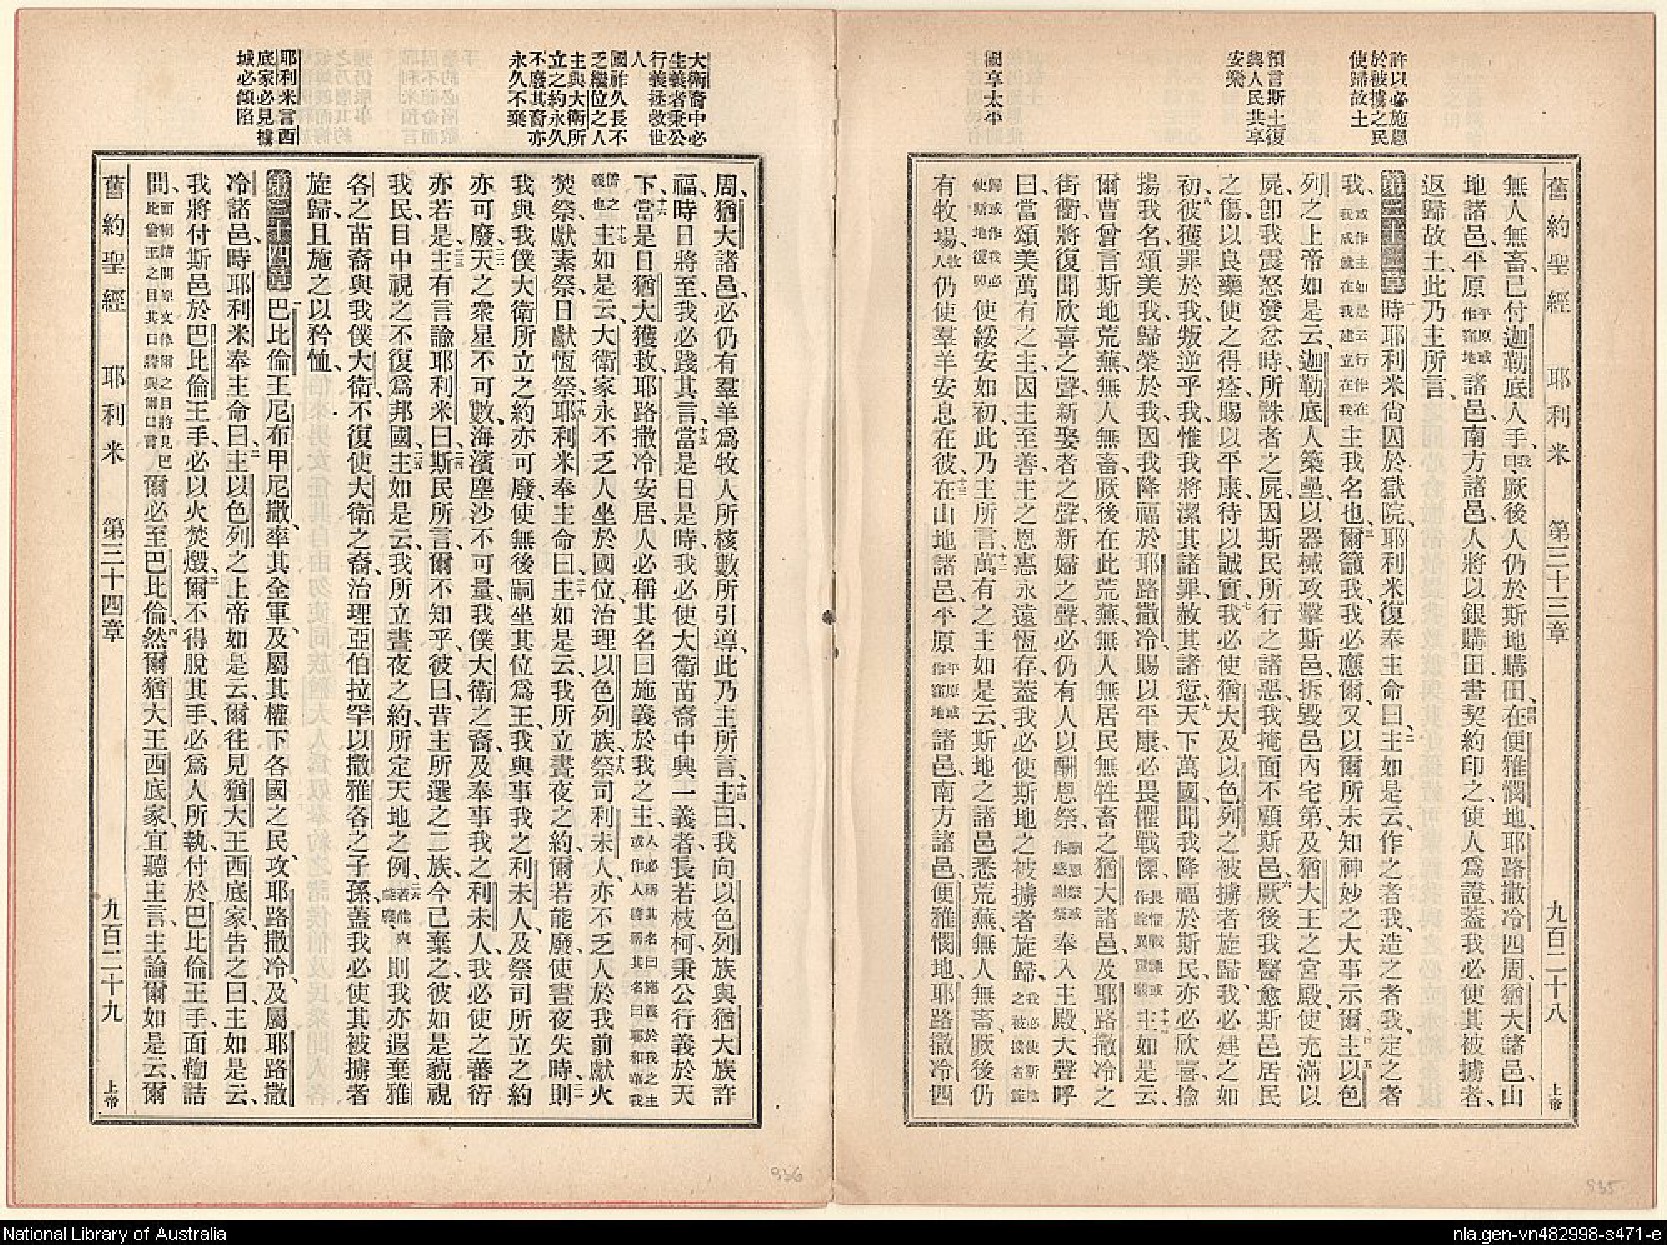 許以必施恩
於被擄之民
使歸故土
預言斯土復
與人民共享
安樂
國享太平
舊約聖經 耶利米 第三十三章 九百二十八 上帝
無人無畜、已付迦勒底人手、四三厥後人仍於斯地購田、四四在便雅憫地、耶路撒冷四周、猶大諸邑、山
地諸邑、平原平原或作窪地諸邑、南方諸邑、人將以銀購田、書契約、印之、使人爲證、蓋我必使其被擄者、
返歸故土、此乃主所言、
第三十三章 一時耶利米尙囚於獄院、耶利米復奉主命曰、二主如是云、作之者我、造之者我、定之者
我、或作主如是云行作在我成就在我建立在我主我名也、三爾籲我、我必應爾、又以爾所未知神妙之大事示爾、四主以色
列之上帝如是云、迦勒底人築壘、以器械攻擊斯邑、拆毀邑內宅第、及猶大王之宮殿、五使充滿以
屍、卽我震怒發忿時、所誅者之屍、因斯民所行之諸惡、我掩面不顧斯邑、六厥後我醫愈斯邑居民
之傷、以良藥使之得痊、賜以平康、待以誠實、七我必使猶大及以色列之被擄者旋歸、我必建之如
初、八彼獲罪於我、叛逆乎我、惟我將潔其諸罪、赦其諸愆、九天下萬國聞我降福於斯民、亦必欣喜、揄
揚我名、頌美我、歸榮於我、因我降福於耶路撒冷、賜以平康、必畏懼戰慄、十主如是云、
爾曹曾言斯地荒蕪、無人無畜、厥後在此荒蕪、無人無居民無牲畜之猶大諸邑、及耶路撒冷之
街衢、十一將復聞欣喜之聲、新娶者之聲、新婦之聲、必仍有人以酬恩祭、酬恩祭或作感謝祭奉入主殿、大聲呼
曰、當頌美萬有之主、因主至善、主之恩惠、永遠恆存、蓋我必使斯地之被擄者旋歸、
使綏安如初、此乃主所言、十二萬有之主如是云、斯地之諸邑悉荒蕪、無人無畜、厥後仍
有牧場、牧人仍使羣羊安息在彼、十三在山地諸邑、平原平原或作窪地諸邑、南方諸邑、便雅憫地、耶路撒冷四
大衛裔中必
生義者秉公
行義拯救世
人
國祚久長不
乏繼位之人
主與大衛所
立之約永久
不廢其裔亦
永久不棄
耶利米言西
底家必見擄
城必傾陷
周、猶大諸邑、必仍有羣羊爲牧人所核數所引導、此乃主所言、十四主曰、我向以色列族與猶大族許
福、時日將至、我必踐其言、十五當是日是時、我必使大衛苗裔中興一義者、長若枝柯、秉公行義於天
下、十六當是日、猶大獲救、耶路撒冷安居、人必稱其名曰、施義於我之主、
十七主如是云、大衛家永不乏人坐於國位治理以色列族、十八祭司利未人、亦不乏人於我前獻火
焚祭、獻素祭、日獻恆祭、十九耶利米奉主命曰、二十主如是云、我所立晝夜之約、爾若能廢、使晝夜失時、二一則
我與我僕大衛所立之約亦可廢、使無後嗣坐其位爲王、我與事我之利未人、及祭司所立之約
亦可廢、二二天之衆星不可數、海濱塵沙不可量、我僕大衛之裔、及奉事我之利未人、我必使之蕃衍
亦若是、二三主有言諭耶利米曰、二四斯民所言、爾不知乎、彼曰、昔主所選之二族、今已棄之、彼如是藐視
我民、目中視之不復爲邦國、二五主如是云、我所立晝夜之約、所定天地之例、二六若能廢、則我亦遐棄雅
各之苗裔、與我僕大衛、不復使大衛之裔、治理亞伯拉罕以撒雅各之子孫、蓋我必使其被擄者
旋歸、且施之以矜恤、
第三十四章 一巴比倫王尼布甲尼撒、率其全軍、及屬其權下各國之民、攻耶路撒冷、及屬耶路撒
冷諸邑、時耶利米奉主命曰、二主以色列之上帝如是云、爾往見猶大王西底家、告之曰、主如是云、
我將付斯邑於巴比倫王手、必以火焚燬、三爾不得脫其手、必爲人所執、付於巴比倫王手、面覿詰
問、爾必至巴比倫、四然爾猶大王西底家、宜聽主言、主論爾如是云、爾
舊約聖經 耶利米 第三十四章 九百二十九 上帝
936
935
National Library of Australia
nla.gen-vn482998-s471-e